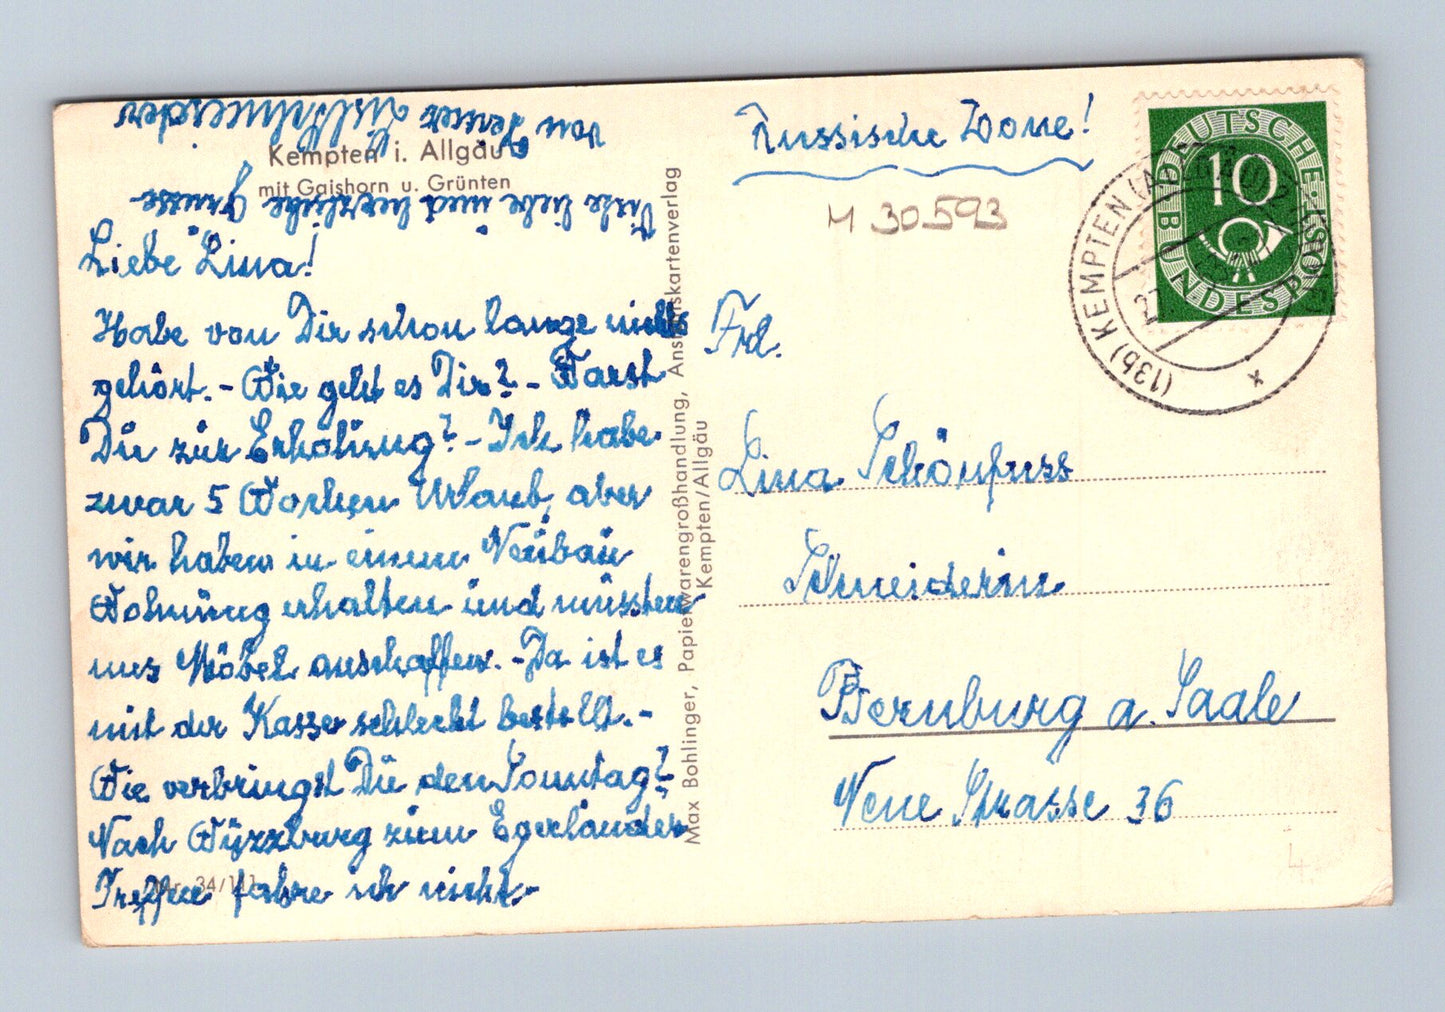 Kempten i. Allgäu
mit Gaishorn u. Grünten
Liebe Lina!
Habe von Dir schon lange nichts
gehört. - Wie geht es Dir? - Warst
Du zur Erholung? - Ich habe
zwar 5 Wochen Urlaub, aber
wir haben in einem Neubau
Wohnung erhalten und müssten
uns Möbel anschaffen. - Da ist es
mit der Kasse schlecht bestellt. -
Wie verbringst Du den Sonntag?
Nach Würzburg zum Egerländer
Treffen fahre ich nicht. -
Viele liebe und herzliche Grüsse
von Deiner
Nr. 34/111
Max Bohlinger, Papierwarengroßhandlung, Ansichtskartenverlag
Kempten/Allgäu
Russische Zone!
M 30593
DEUTSCHE
BUNDESPOST
10
(13b) KEMPTEN (ALLGÄU) 2
Frl.
Lina Schönfuss
Schneiderin
Bernburg a. Saale
Neue Strasse 36
4